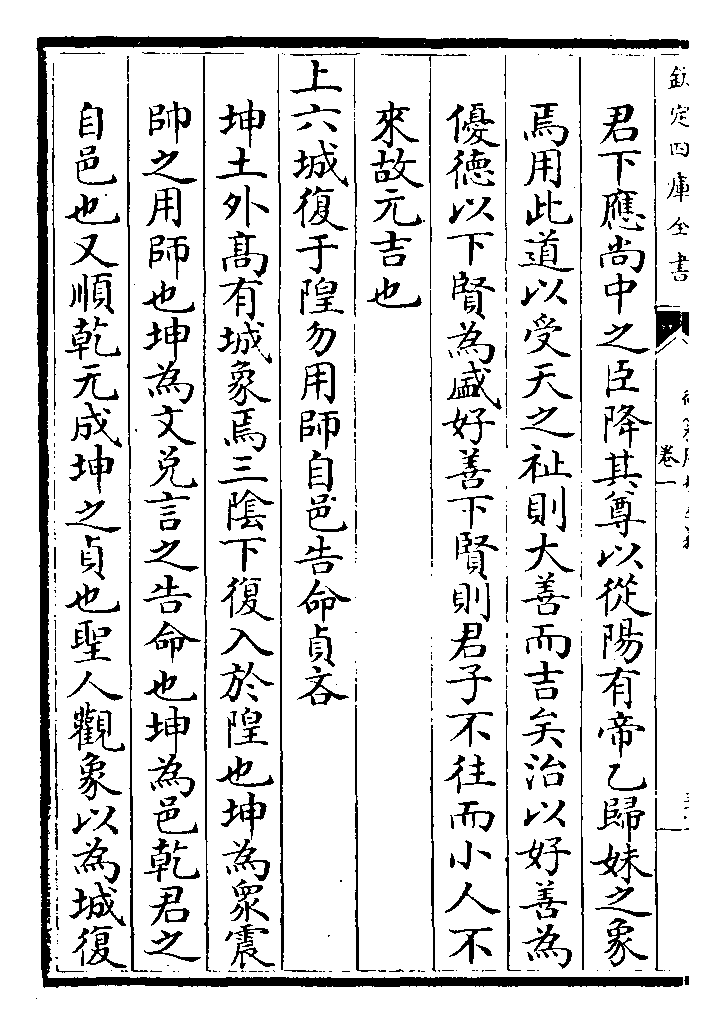 欽定四庫全書
卷一
君下應尚中之臣降其尊以從陽有帝乙歸妹之象
焉用此道以受天之祉則大善而吉矣治以好善為
優德以下賢為盛好善下賢則君子不往而小人不
來故元吉也
上六城復于隍勿用師自邑告命貞吝
坤土外髙有城象焉三陰下復入於隍也坤為衆震
帥之用師也坤為文兌言之告命也坤為邑乾君之
自邑也又順乾元成坤之貞也聖人觀象以為城復